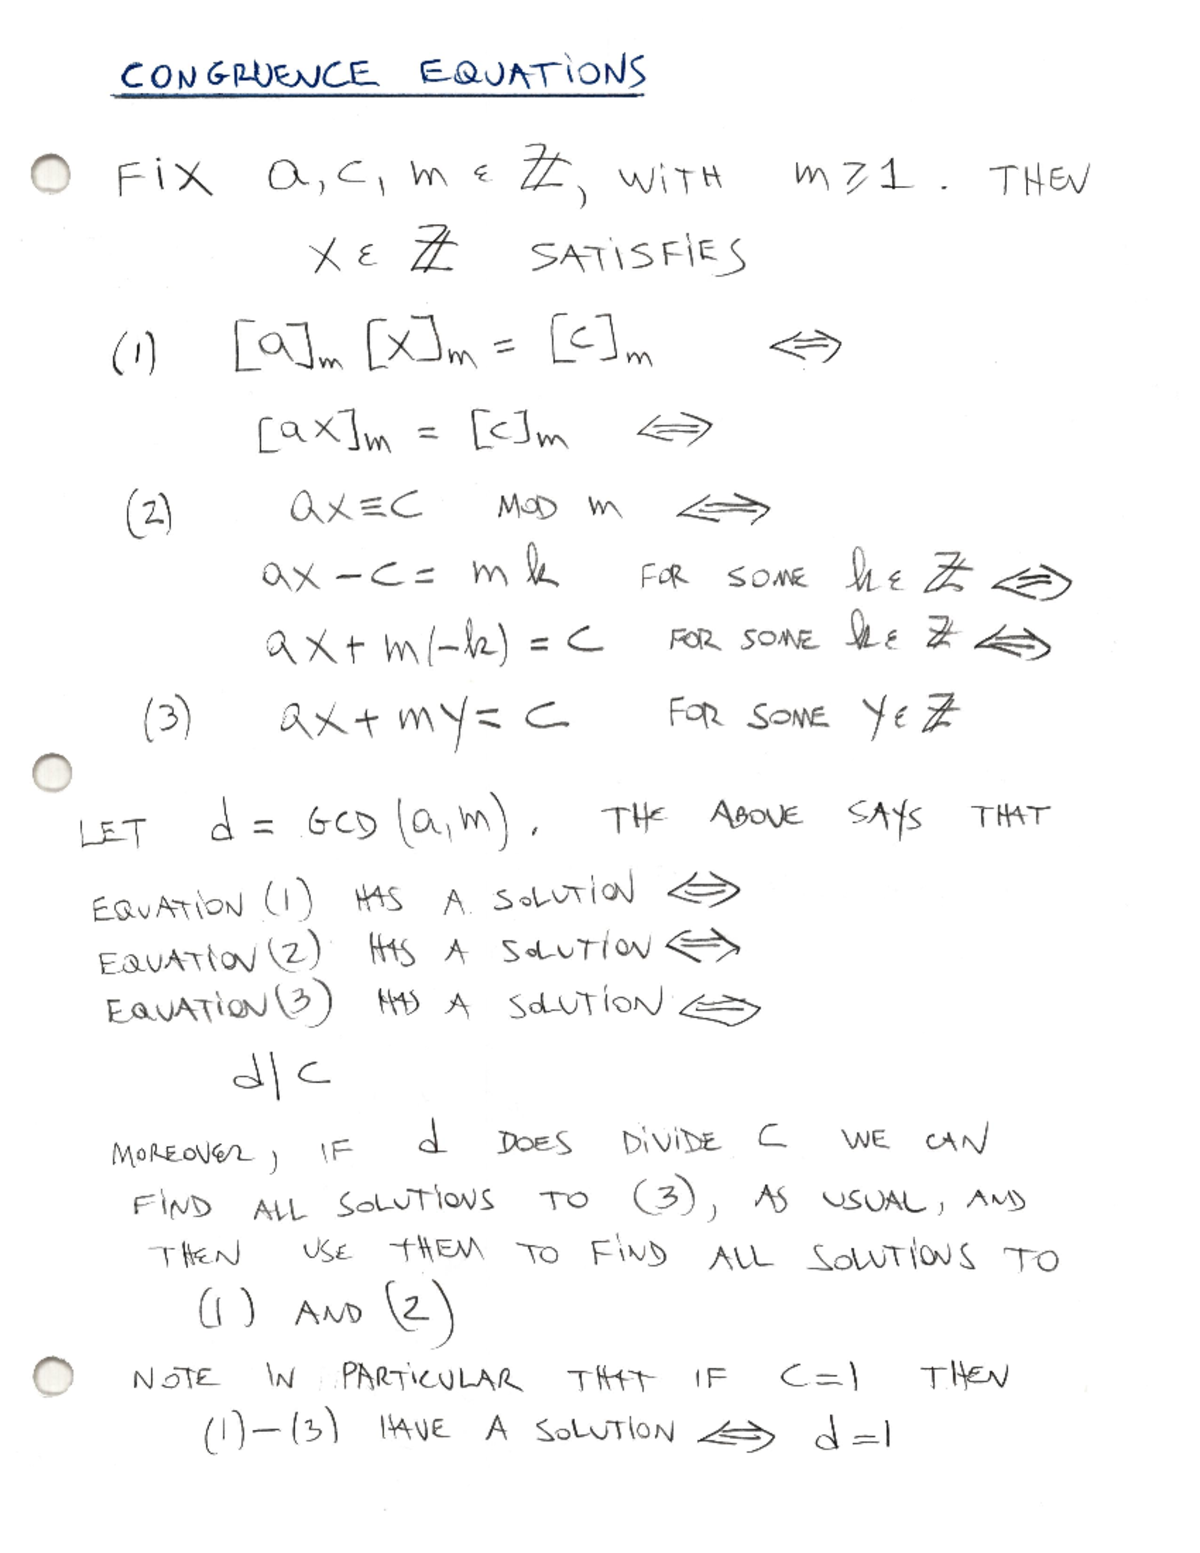 CONGRUENCE EQUATIONS
FIX a, c, m ε ℤ, WITH m ⩾ 1. THEN
x ε ℤ SATISFIES
(1) [a]m [x]m = [c]m ⟺
[ax]m = [c]m ⟺
(2) ax ≡ c MOD m ⟺
ax - c = mk FOR SOME k ε ℤ ⟺
ax + m(-k) = c FOR SOME k ε ℤ ⟺
(3) ax + my = c FOR SOME y ε ℤ
LET d = GCD (a, m). THE ABOVE SAYS THAT
EQUATION (1) HAS A SOLUTION ⟺
EQUATION (2) HAS A SOLUTION ⟺
EQUATION (3) HAS A SOLUTION ⟺
d | c
MOREOVER, IF d DOES DIVIDE c WE CAN
FIND ALL SOLUTIONS TO (3), AS USUAL, AND
THEN USE THEM TO FIND ALL SOLUTIONS TO
(1) AND (2)
NOTE IN PARTICULAR THAT IF c = 1 THEN
(1) - (3) HAVE A SOLUTION ⟺ d = 1